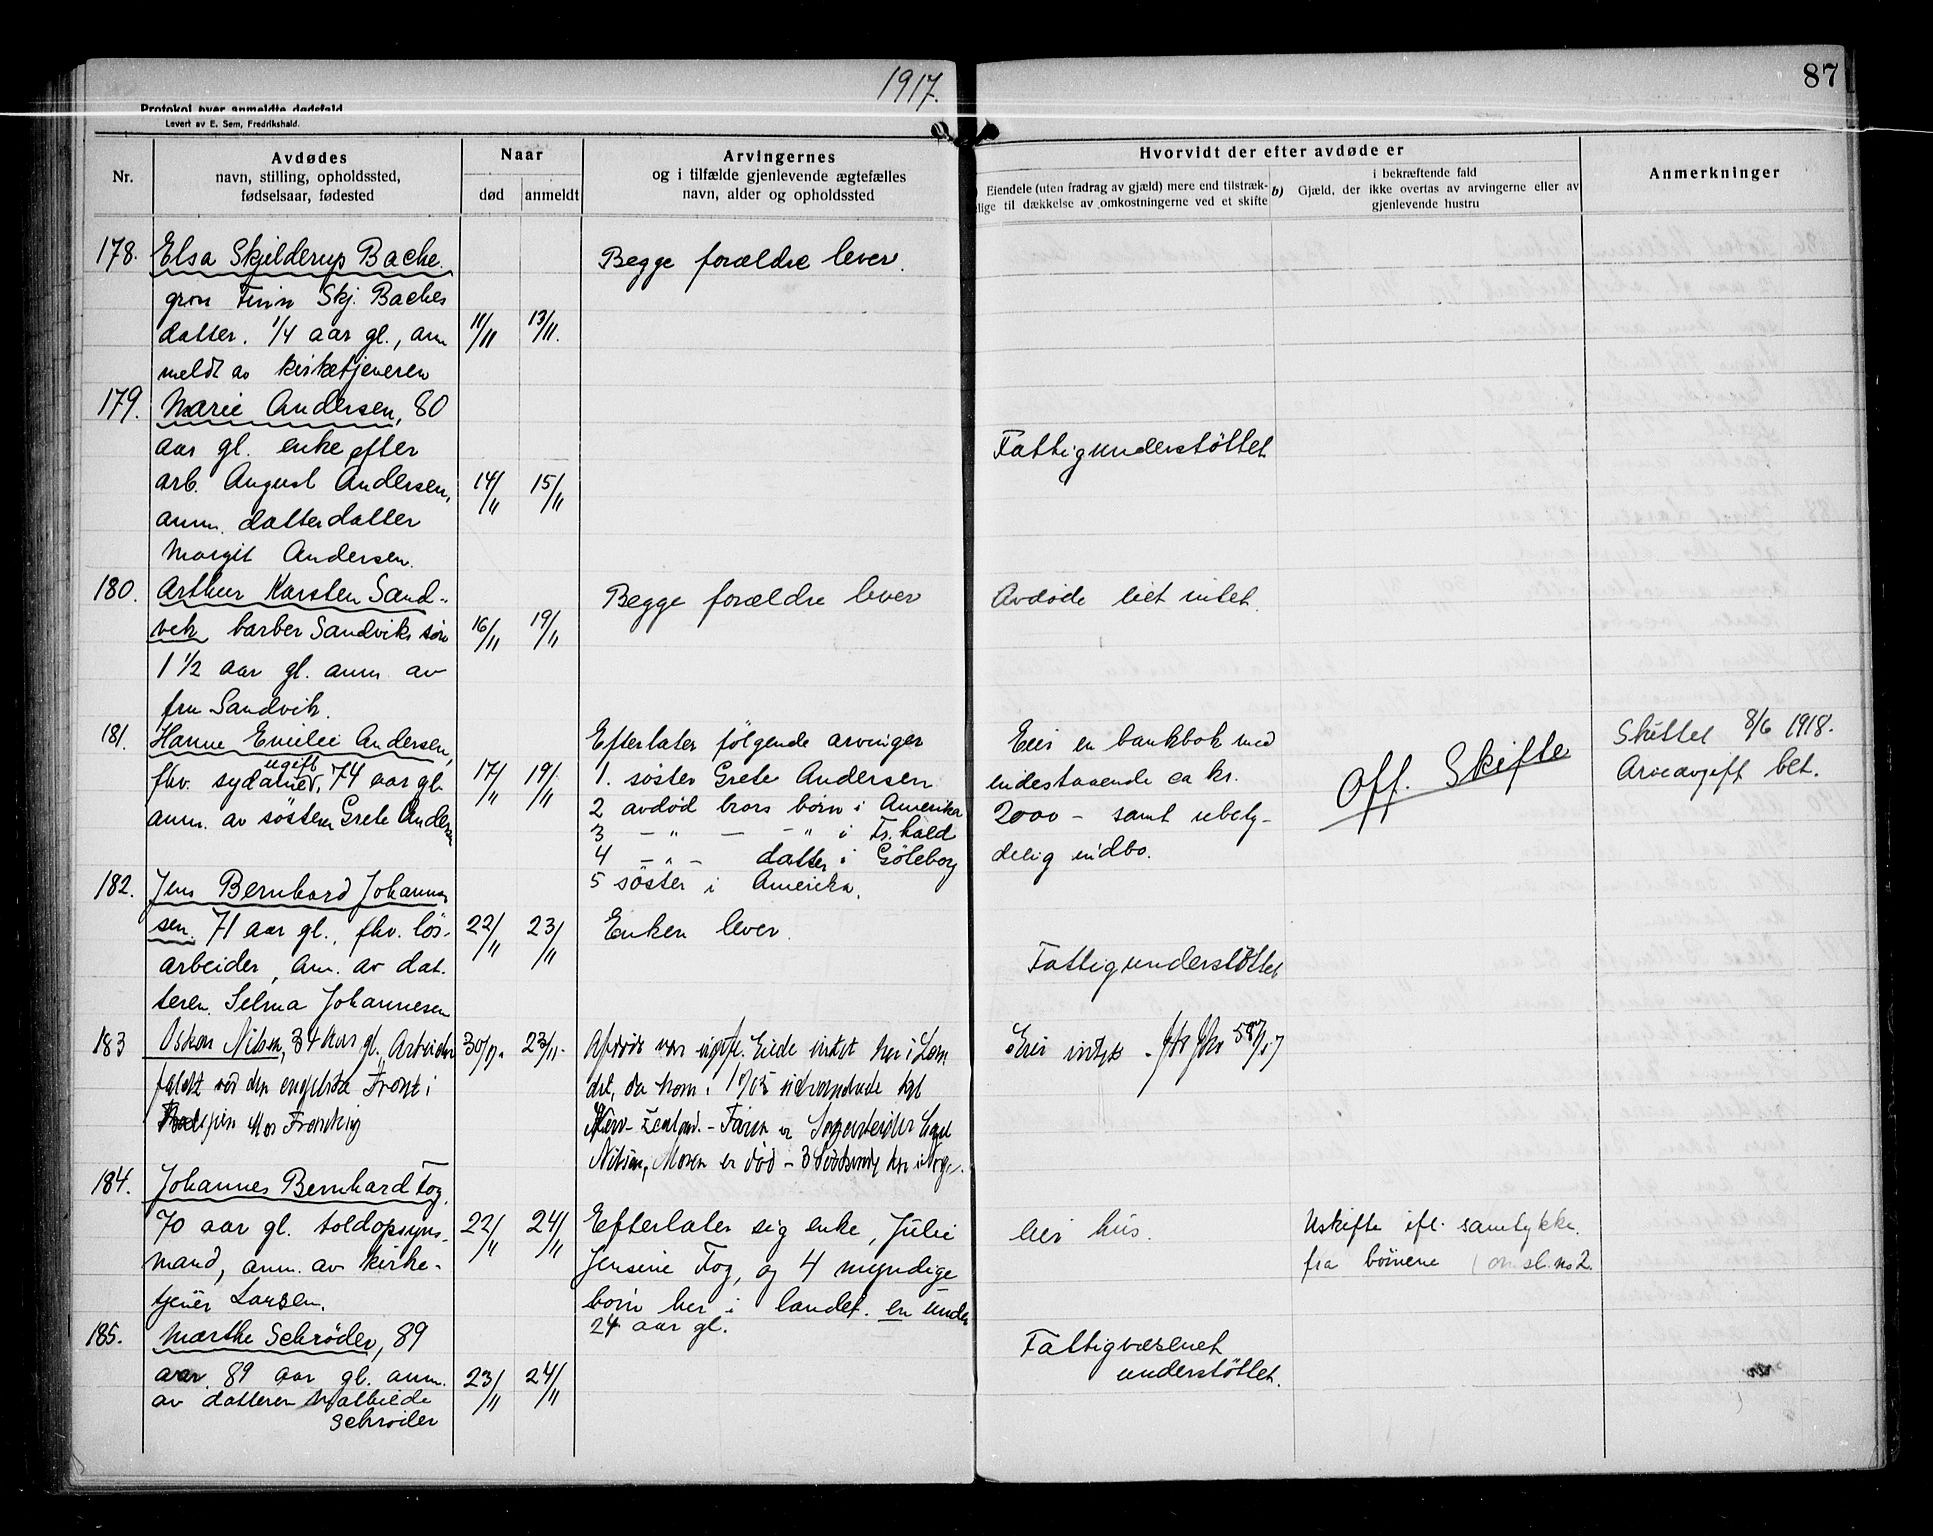 1917.
87
Protokol over anmeldte dødsfald
Levert av E. Sem, Fredrikshald.
Nr.
Avdødes
navn, stilling, opholdssted,
fødselsaar, fødested
Naar
død
anmeldt
Arvingernes
og i tilfælde gjenlevende ægtefælles
navn, alder og opholdssted
Hvorvidt der efter avdøde er
) Eiendele (uten fradrag av gjæld) mere end tilstræk-
lige til dækkelse av omkostningerne ved et skifte
b)
i bekræftende fald
Gjæld, der ikke overtas av arvingerne eller av
gjenlevende hustru
Anmerkninger
178.
Elsa Skjelderup Bache.
gros Finn Skj. Baches
datter. 1/4 aar gl., an
meldt av kirketjeneren
11/11
13/11.
Begge forældre lever.
179.
Marie Andersen, 80
aar gl. enke efter
arb. August Andersen,
anm. datterdatter
Margit Andersen.
14/11
15/11
Fattigunderstøttet
180.
Arthur Karsten Sand-
vik, barber Sandviks søn
1 1/2 aar gl. anm. av
fru Sandvik.
16/11
19/11
Begge forældre lever
Avdøde eiet intet.
181.
Hanne Emilie Andersen,
ugift
fhv. sydame, 74 aar gl.
anm. av søsteren Grete Andersen
17/11
19/11
Efterlater følgende arvinger
1. søster Grete Andersen
2 avdød brors børn i Amerika
3 — " — — " i Fr.hald
4 — " — datter i Gøteborg
5 søster i Amerika.
Eier en bankbok med
indestaaende ca kr.
2000 - samt ubety-
delig indbo.
Off. Skifte
Skiftet 8/6 1918.
Arveavgift bet.
182.
Jens Bernhard Johannes
sen. 71 aar gl., fhv. løs-
arbeider, am. av dat.
teren Selma Johannesen
22/11
23/11
Enken lever.
Fattigunderstøttet
183
Oskar Nilsen, 34 Aar gl, Arbeider
faldt ved den engelske Front i
Frankrig
23/11.
Afdøde var ugift. Eiede intet her i Lan
det, da han i
New-Zealand. - Faren er
Nilsen, Moren er død - 3
Eier intet.
184.
Johannes Bernhard Fog.
70 aar gl. toldopsyns-
mand, anm. av kirke-
tjener Larsen.
22/11
24/11
Efterlater sig enke, Julie
Jensine Fog, og 4 myndige
børn her i landet. en under
24 aar gl.
eier hus.
Uskifte ifl. samtykke
fra børnene
185.
Marthe Schrøder, 89
aar 89 aar gl. anm.
av datteren Mathilde
Schrøder
23/11
24/11
Fattigvæsenet
understøttet.